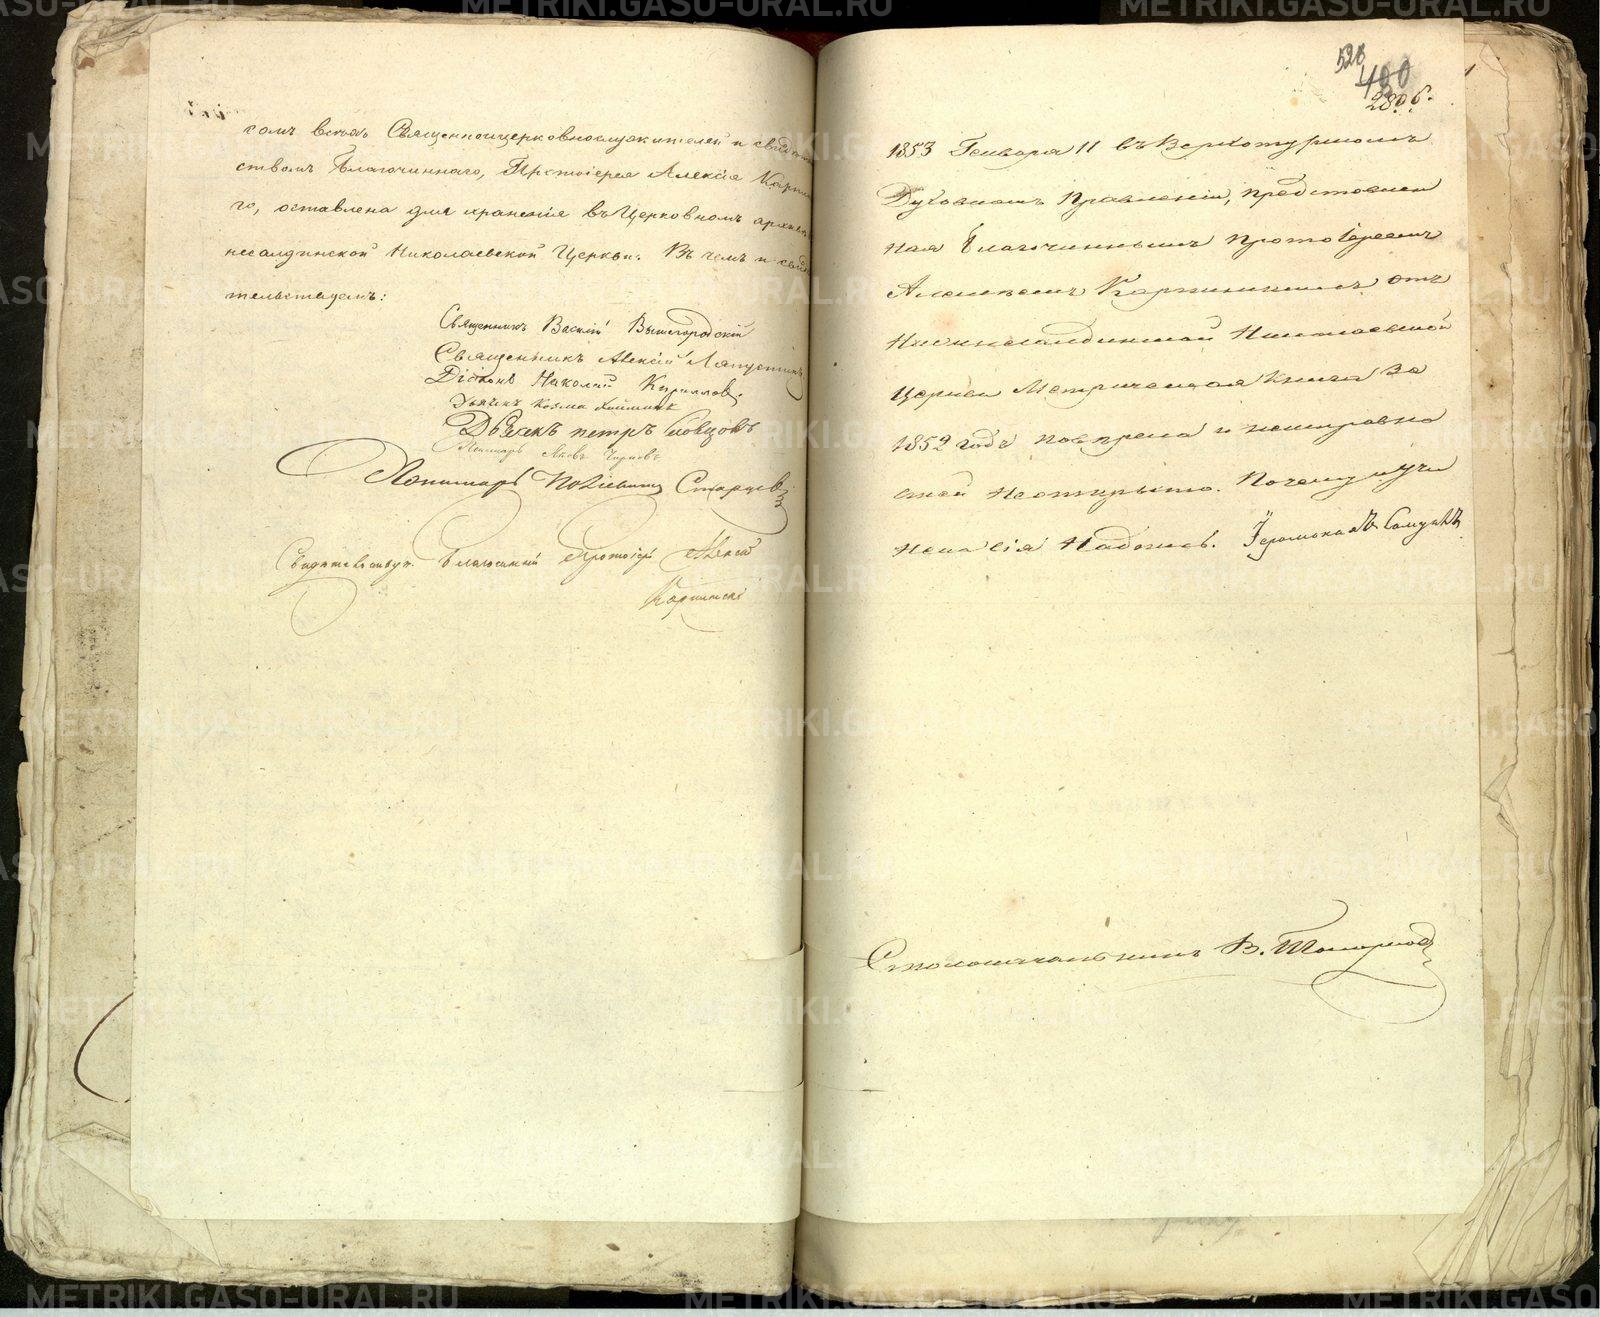 гомъ всѣхъ Священноцерковнослужителей и свидѣтель
ствомъ Благочиннаго, Протоіерея Алексія Карпи
го, оставлена для храненія въ Церковномъ архивѣ
несалдинской Николаевской Церкви. Въ чемъ и свидѣ
тельствуемъ:
Священникъ Василій Вышегородскій
Священникъ Алексій Ляпустинъ
Діаконъ Николай Кирилловъ.
Дьячекъ Козма
Дьячекъ петръ Словцовъ
Пономарь Яковъ Чирковъ
Пономарь Старцев
Свидѣтельствую. Благочинный Протоіерей Алексій
Карпинскій
520
400
280 б.
1853 Генваря 11 въ Верхотурскомъ
Духовномъ Правленіи, представлен
ная Благочиннымъ Протоіереемъ
Алексѣемъ Карпинскимъ отъ
Нижнесалдинской Николаевской
Церкви Метрическая Книга За
1852 годъ повѣрена и неисправно
стей Неоткрыто. Почему и учи
нена сія Надпись. Іеромонахъ Самуилъ
Столоначальникъ В. Топорков
METRIKI.GASO-URAL.RU